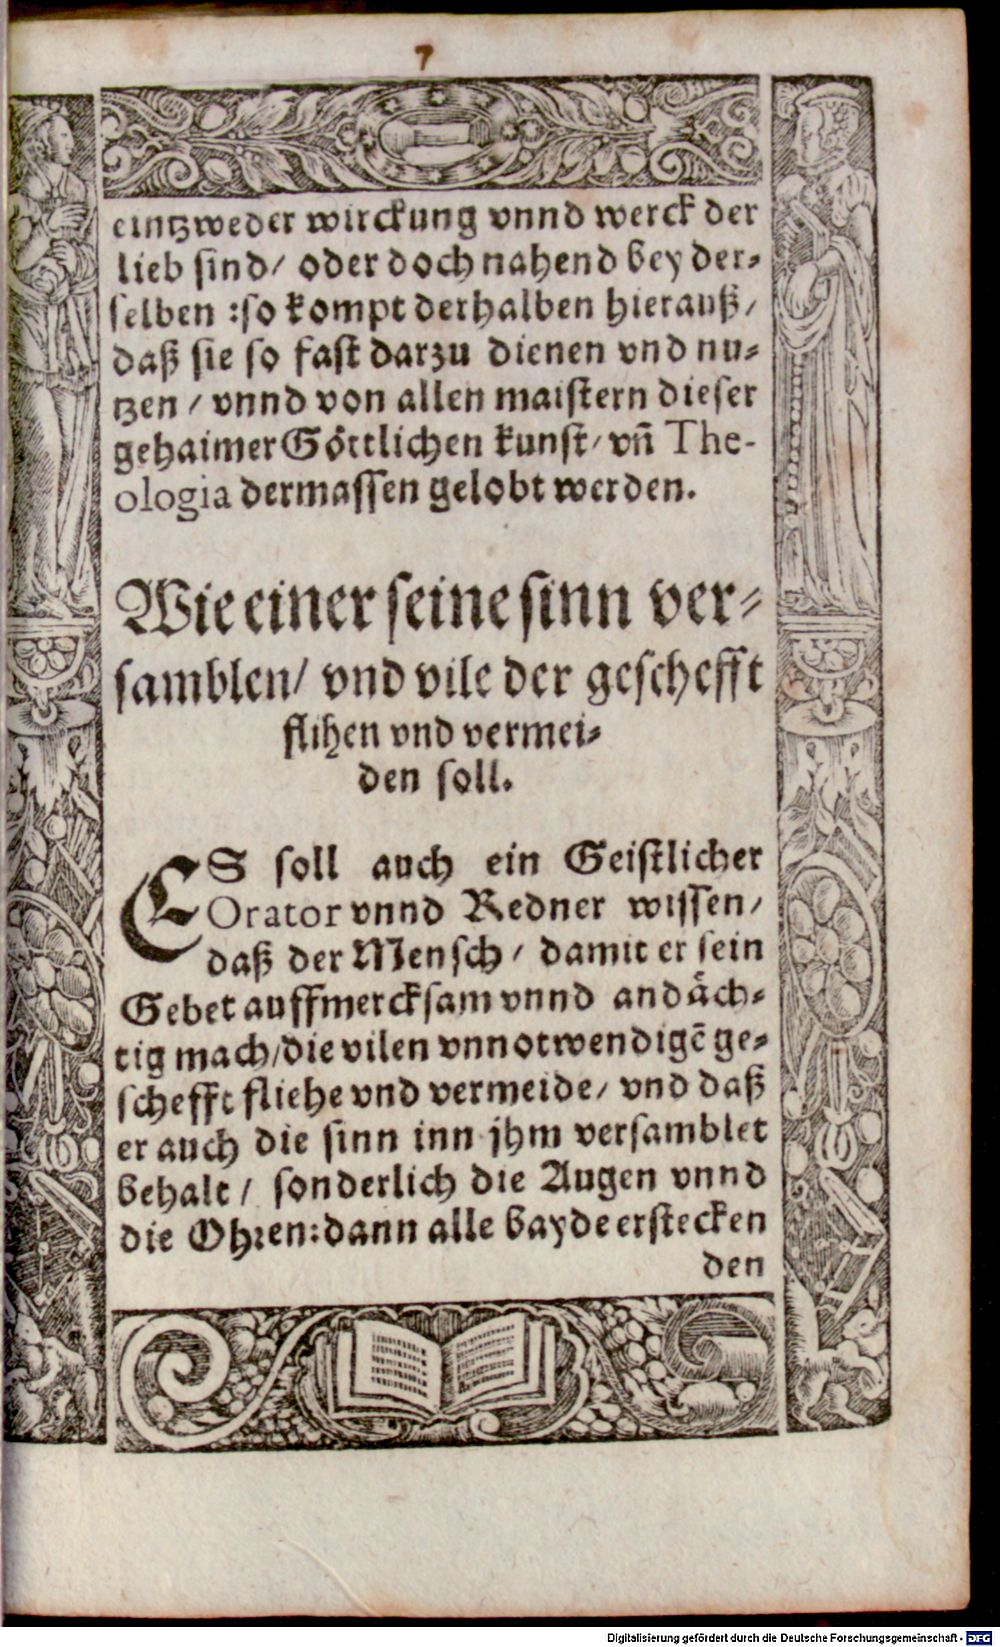 7
eintzweder wirckung vnnd werck der
lieb sind/ oder doch nahend bey der⸗
selben :so kompt derhalben hierauß/
daß sie so fast darzu dienen vnd nu⸗
tzen / vnnd von allen maistern dieser
gehaimer Göttlichen kunst/ vñ The-
ologia dermassen gelobt werden.
Wie einer seine sinn ver⸗
samblen/ vnd vile der geschefft
flihen vnd vermei⸗
den soll.
ES soll auch ein Geistlicher
Orator vnnd Redner wissen/
daß der Mensch/ damit er sein
Gebet auffmercksam vnnd andåch⸗
tig mach/die vilen vnnotwendigē ge⸗
schefft fliehe vnd vermeide/ vnd daß
er auch die sinn inn jhm versamblet
behalt/ sonderlich die Augen vnnd
die Ohren:dann alle bayde erstecken
den
Digitalisierung gefördert durch die Deutsche Forschungsgemeinschaft - DFG